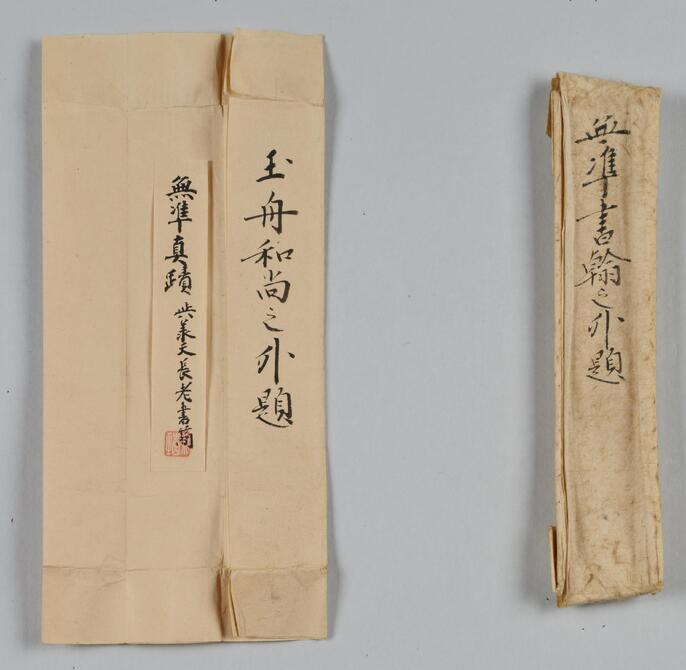 無準書翰之外題
玉舟和尚之外題
無準真蹟 承天長老書簡